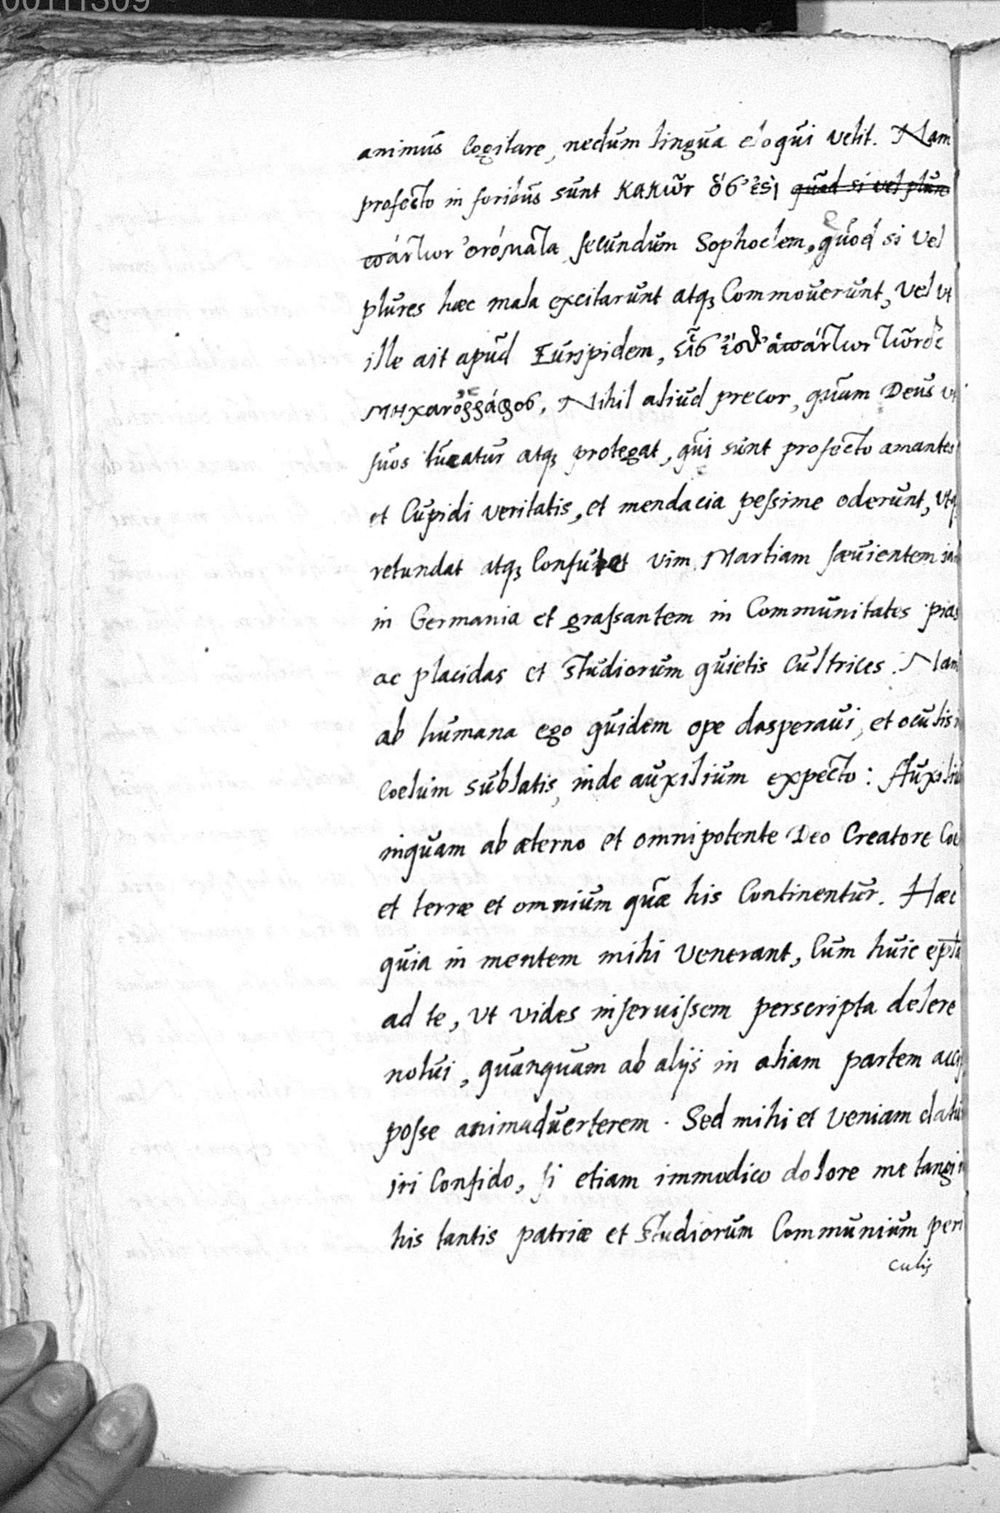 00111309
animus cogitare, nedum lingua eloqui velit. Nam
profecto in foribus sunt κακῶν ὅσ' ἐστὶ quod si vel plures
πάντων ὀνόματα secundum Sophoclem, quod si vel
plures hæc mala excitarunt atq; commoverunt, vel vt
ille ait apud Euripidem, εἷς ἔσθ' ἁπάντων τῶνδε
μηχανοῤῥάφος. Nihil aliud precor, quam Deus vt
suos tueatur atq; protegat, qui sunt profecto amantes
et cupidi veritatis, et mendacia pessime oderunt, vtq;
retundat atq; vim Martiam sæuientem
in Germania et grassantem in communitates pias
ac placidas et studiorum quietis cultrices. Nam
ab humana ego quidem ope desperaui, et oculis
coelum sublatis, inde auxilium expecto: Auxilium
inquam ab æterno et omnipotente Deo Creatore
et terræ et omnium quæ his continentur. Hæc
quia in mentem mihi venerant, cum huic
ad te, vt vides inseruissem perscripta delere
nolui, quanquam ab alijs in aliam partem
posse animaduerterem. Sed mihi et veniam
iri confido, si etiam immodico dolore me tangi
his tantis patriæ et studiorum communium peri
culis